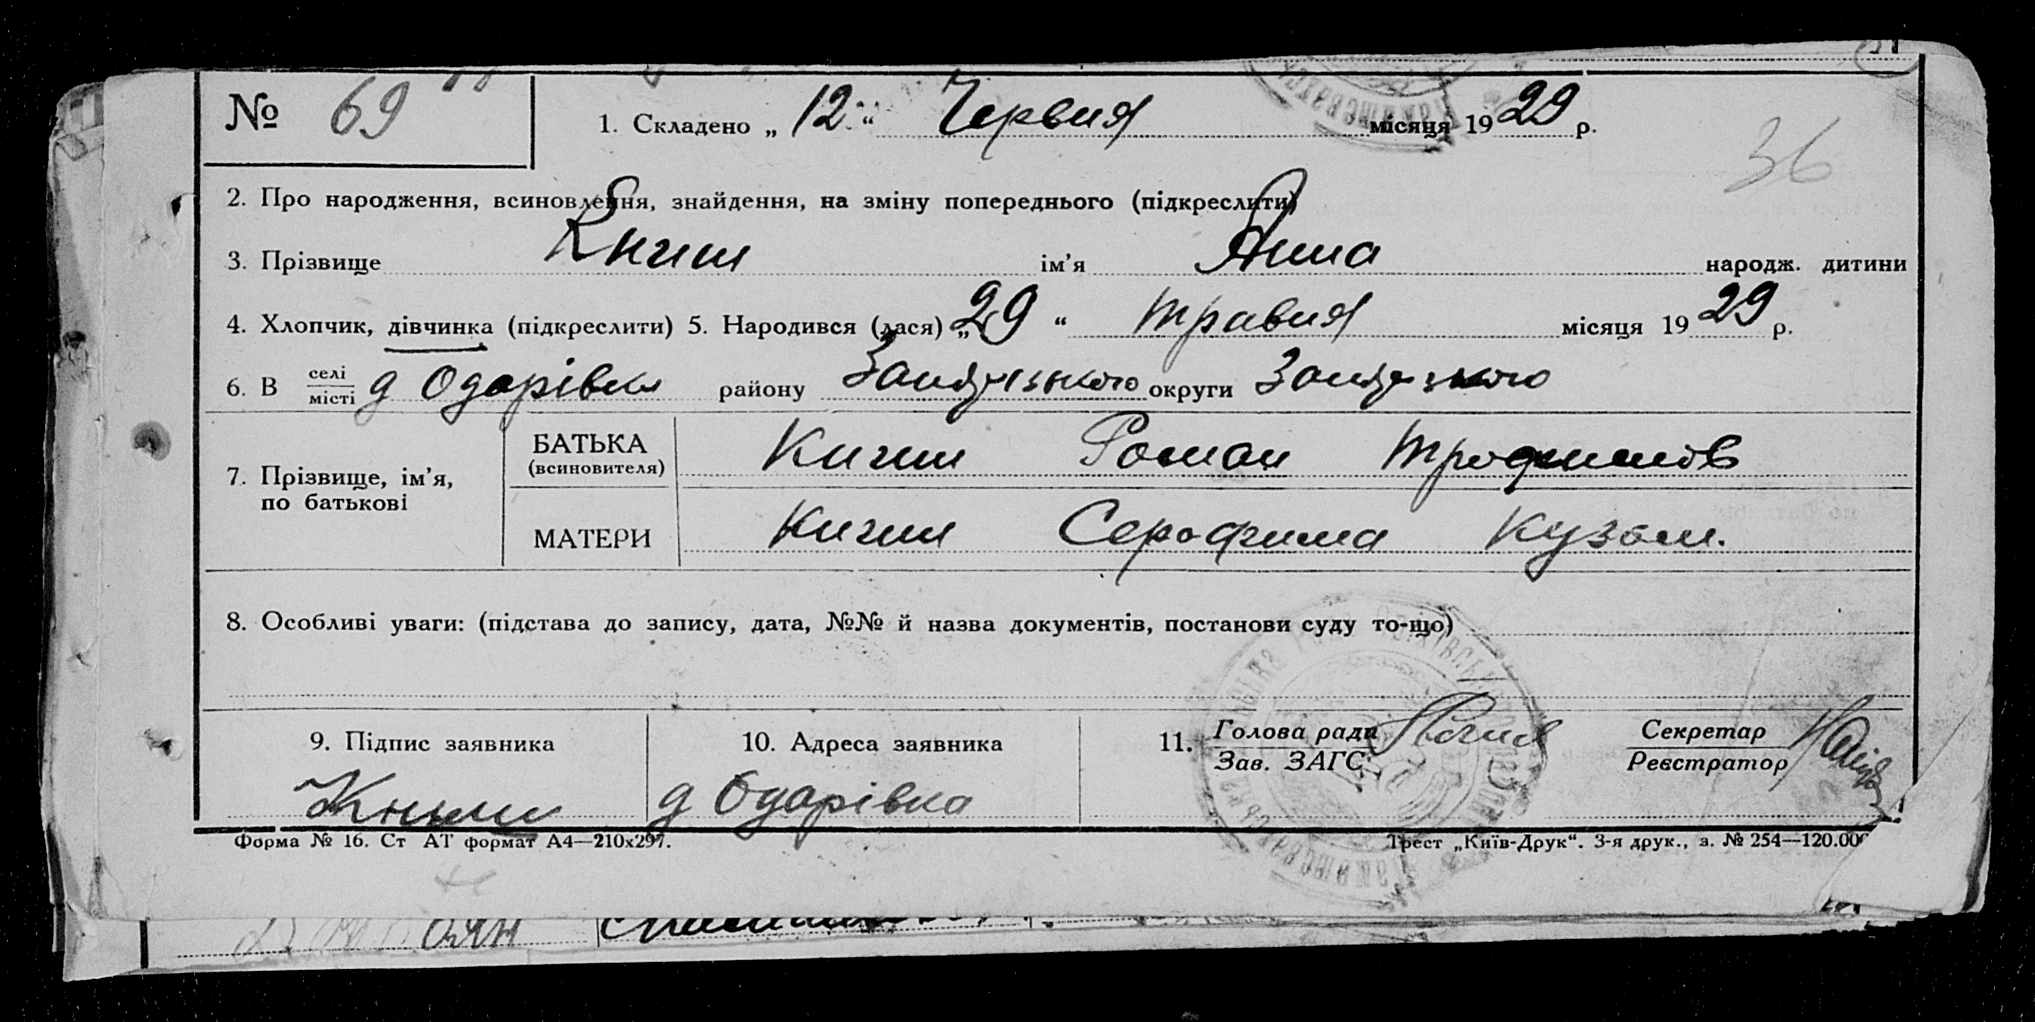 № 69
1. Складено „ 12 “ Червня місяця 1929 р.
36
2. Про народження, всиновлення, знайдення, на зміну попереднього (підкреслити)
3. Прізвище Книш ім’я Анна народж. дитини
4. Хлопчик, дівчинка (підкреслити) 5. Народився (лася) „ 29 “ травня місяця 1929 р.
6. В селі/місті д Одарівка району округи
7. Прізвище, ім’я, по батькові
БАТЬКА (всиновителя) Книш Роман Трофимов
МАТЕРИ Книш Серафима Кузьм.
8. Особливі уваги: (підстава до запису, дата, №№ й назва документів, постанови суду то-що)
9. Підпис заявника
Книш
10. Адреса заявника
д Одарівка
11. Голова ради
Зав. ЗАГС:
Секретар
Реєстратор
Форма № 16. Ст АТ формат А4—210х297.
Трест „Київ-Друк“. 3-я друк., з. № 254—120.000